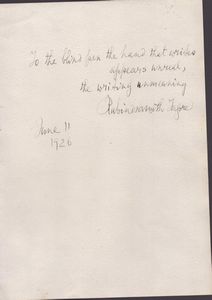 To the blind pen the hand that writes
appears unreal,
the writing unmeaning
Rabindranath Tagore
June 11
1920